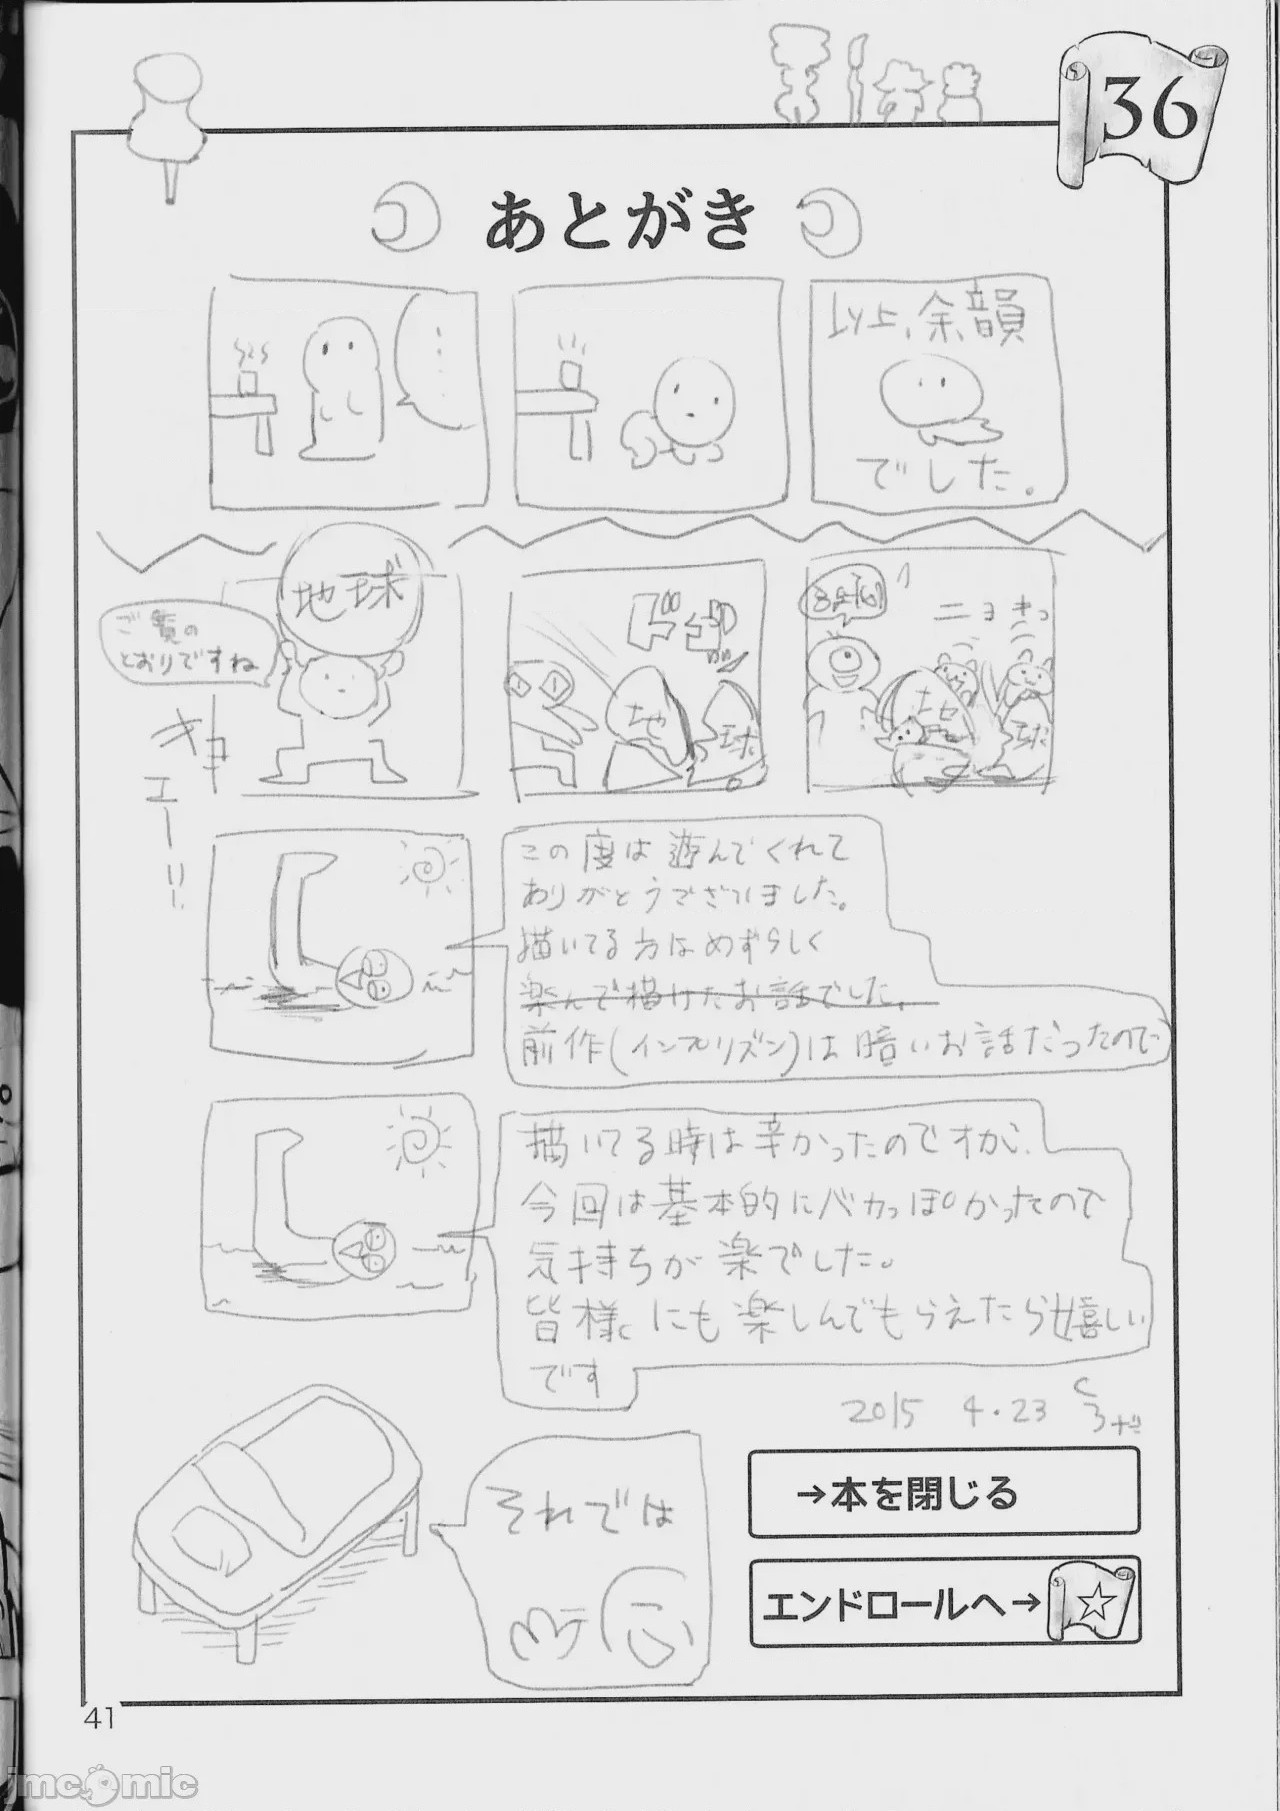 36
あとがき
・・・・
以上、余韻
でした。
地球
ご覧の
とおりですね
地
球
ニョキっ
地
球
エーリ
この度は遊んでくれて
ありがとうございました。
描いてる方はめずらしく
楽んで描けたお話でした。
前作(インプリズン)は暗いお話だったので
描いてる時は辛かったのですが、
今回は基本的にバカっぽかったので
気持ちが楽でした。
皆様にも楽しんでもらえたら嬉しい
です
2015 4.23
それでは
→本を閉じる
エンドロールへ→
41
jmcomic